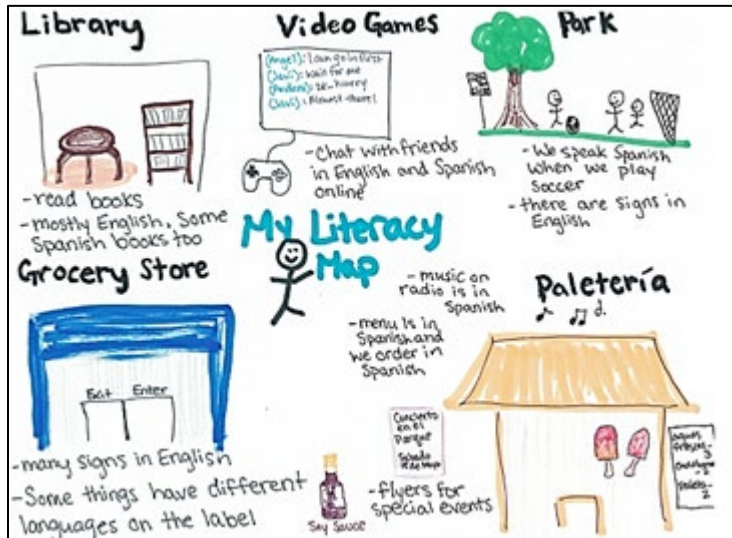 Library
- read books
- mostly English, Some
Spanish books too
Video Games
(Angel): I can go in first
(Javi): wait for me
hurry
(Javi): Almost there!
- Chat with friends
in English and Spanish
online
Park
- We speak Spanish
when we play
Soccer
- there are signs in
English
My Literacy
Map
Grocery Store
Exit Enter
- many signs in English
- Some things have different
languages on the label
Soy Sauce
Paletería
- music on
radio is in
Spanish
- menu is in
Spanish and
we order in
Spanish
Concierto
en el
Parque
Sabado
- flyers for
special events